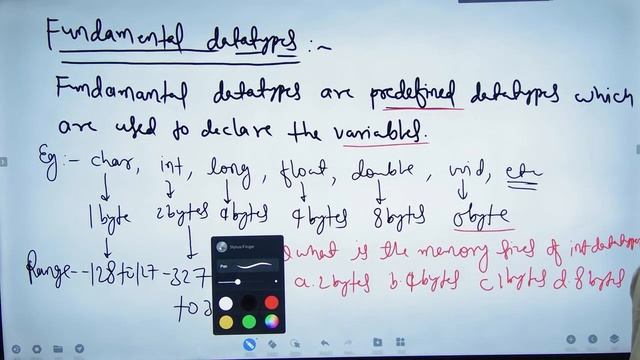 Fundamental datatypes :~
Fundamantal datatypes are predefined datatypes which
are used to declare the variables.
Eg :- char, int, long, float, double, void, etc
1 byte 2bytes 4bytes 4bytes 8bytes 0byte
Range - -128 to 127 -327
to
Stylus/Finger
Pen
Q what is the memory sizes of int datatypes
a. 2bytes b. 4bytes c 1bytes d. 8bytes